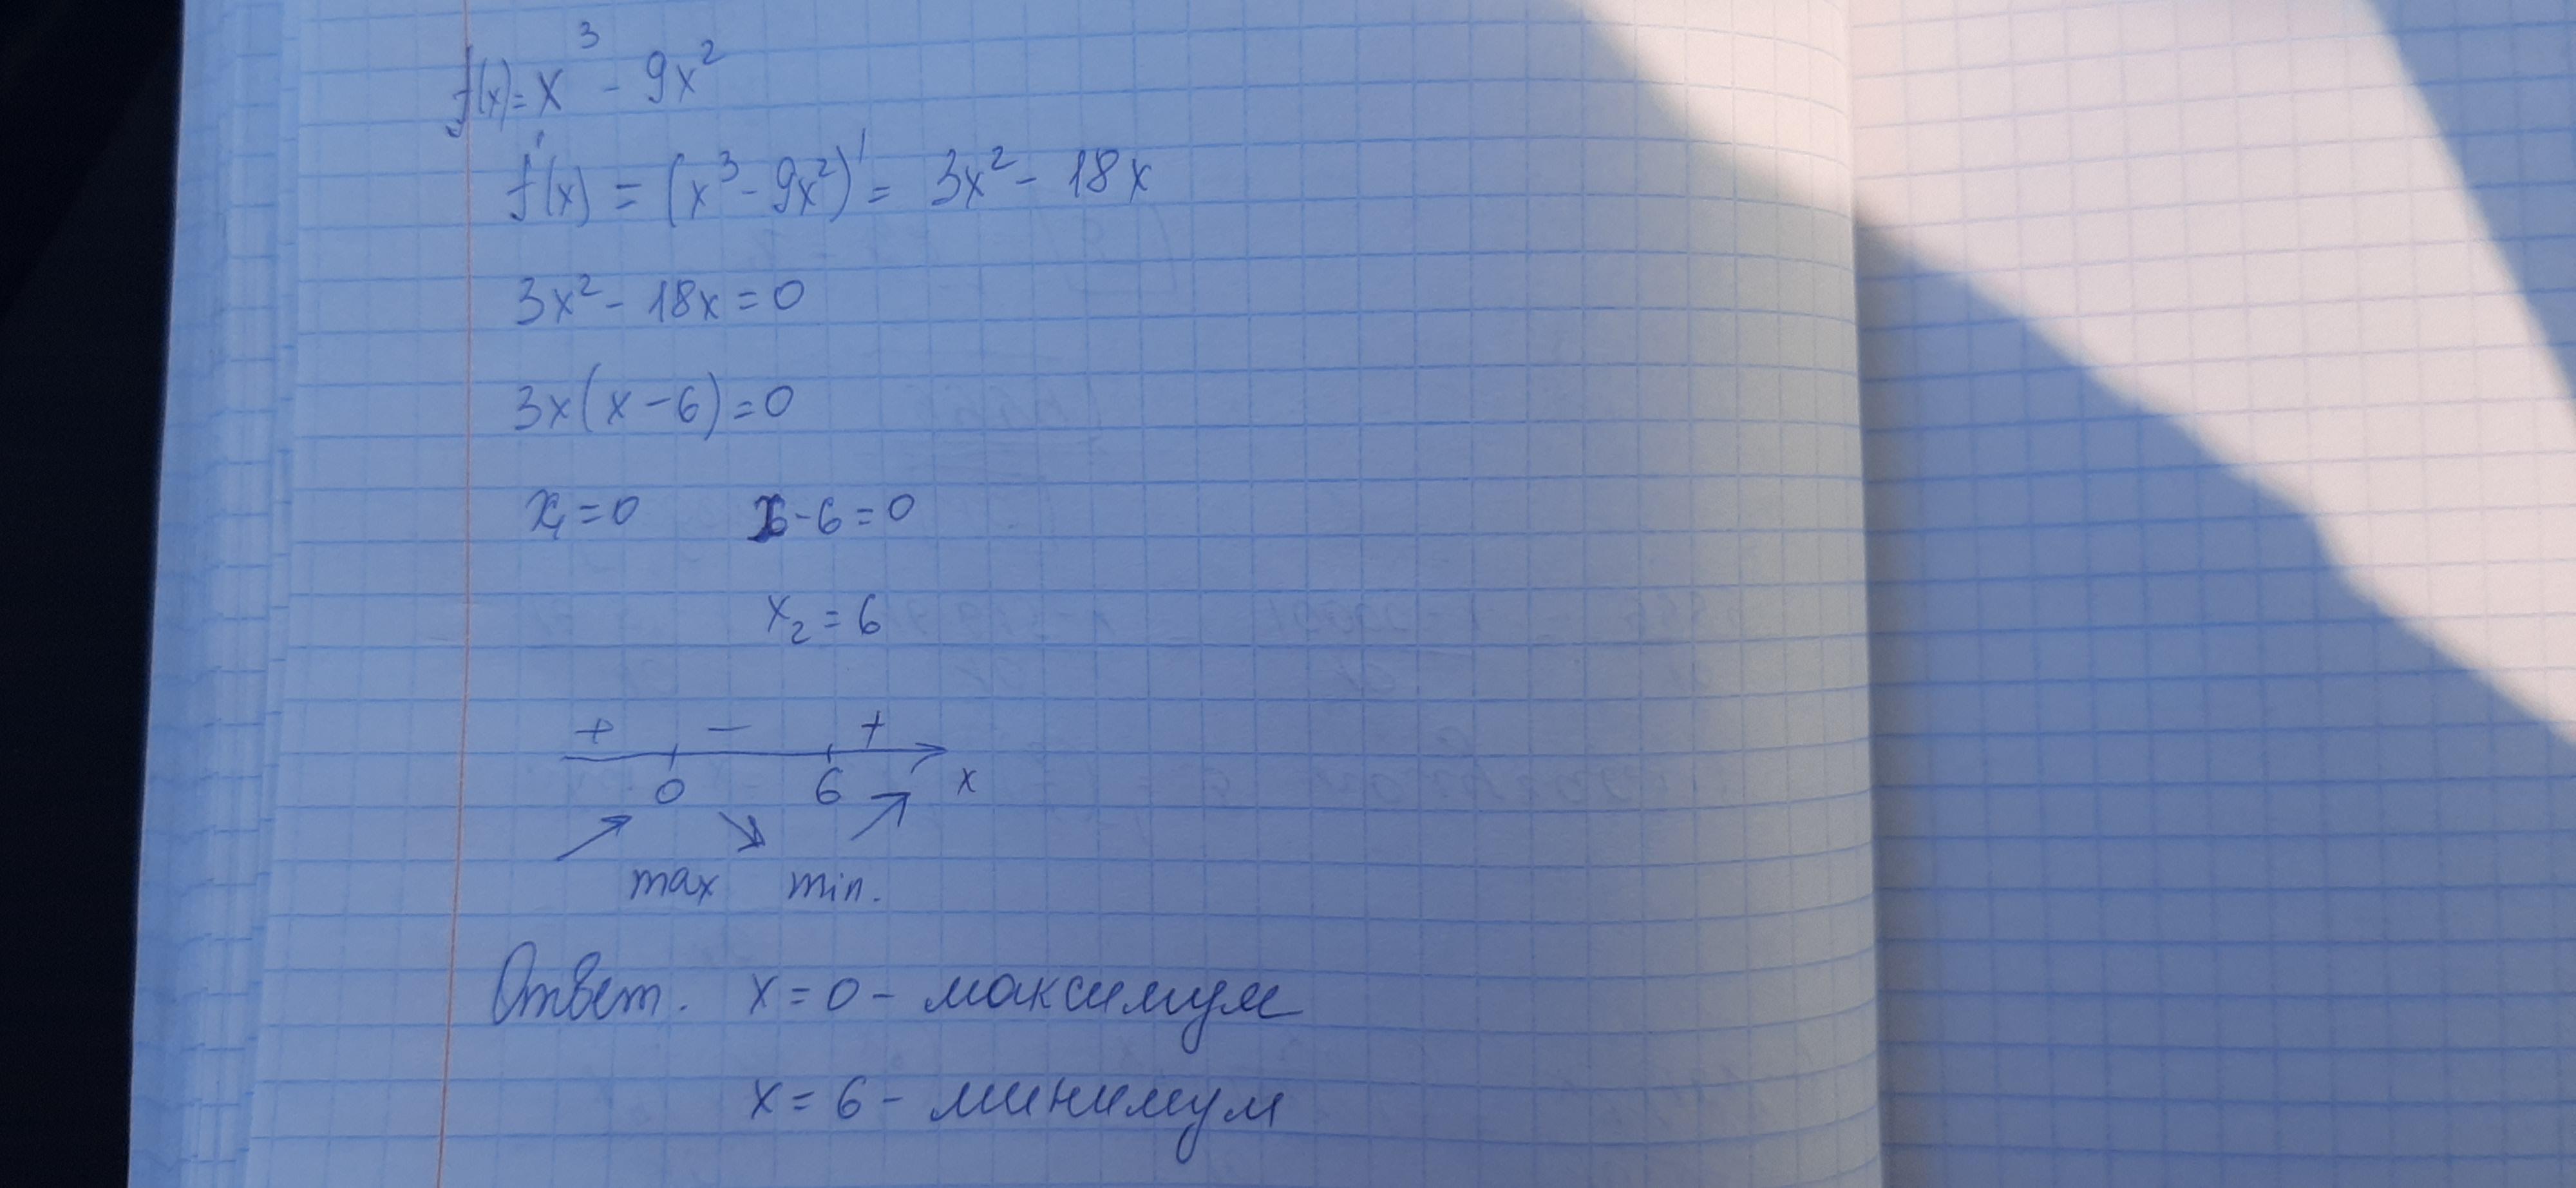 f(x)=x³-9x²
f'(x) = (x³-9x²)' = 3x²-18x
3x²-18x=0
3x(x-6)=0
x₁=0 x-6=0
x₂=6
+ - +
0 6 x
max min.
Ответ. x=0- максимум
x=6- минимум